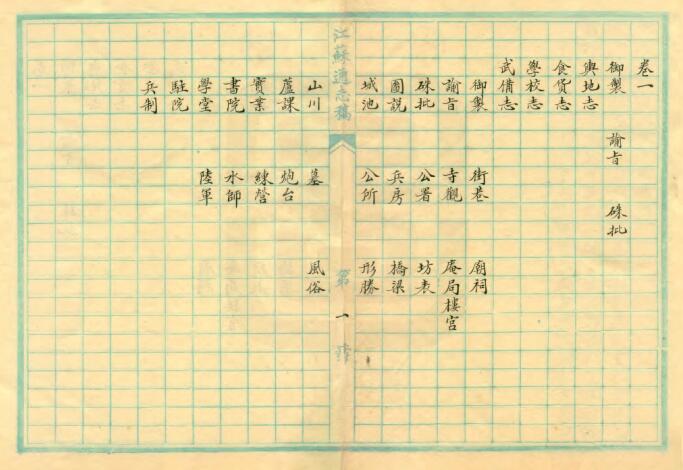 卷一
御製 諭旨 硃批
輿地志
食貨志
學校志
武備志
御製 街巷 廟祠
諭旨 寺觀 庵局樓宮
硃批 公署 坊表
圖說 兵房 橋梁
城池 公所 形勝
江蘇通志稿 第一
山川 墓 風俗
蘆課 炮台
實業 練營
書院 水師
學堂 陸軍
駐院
兵制